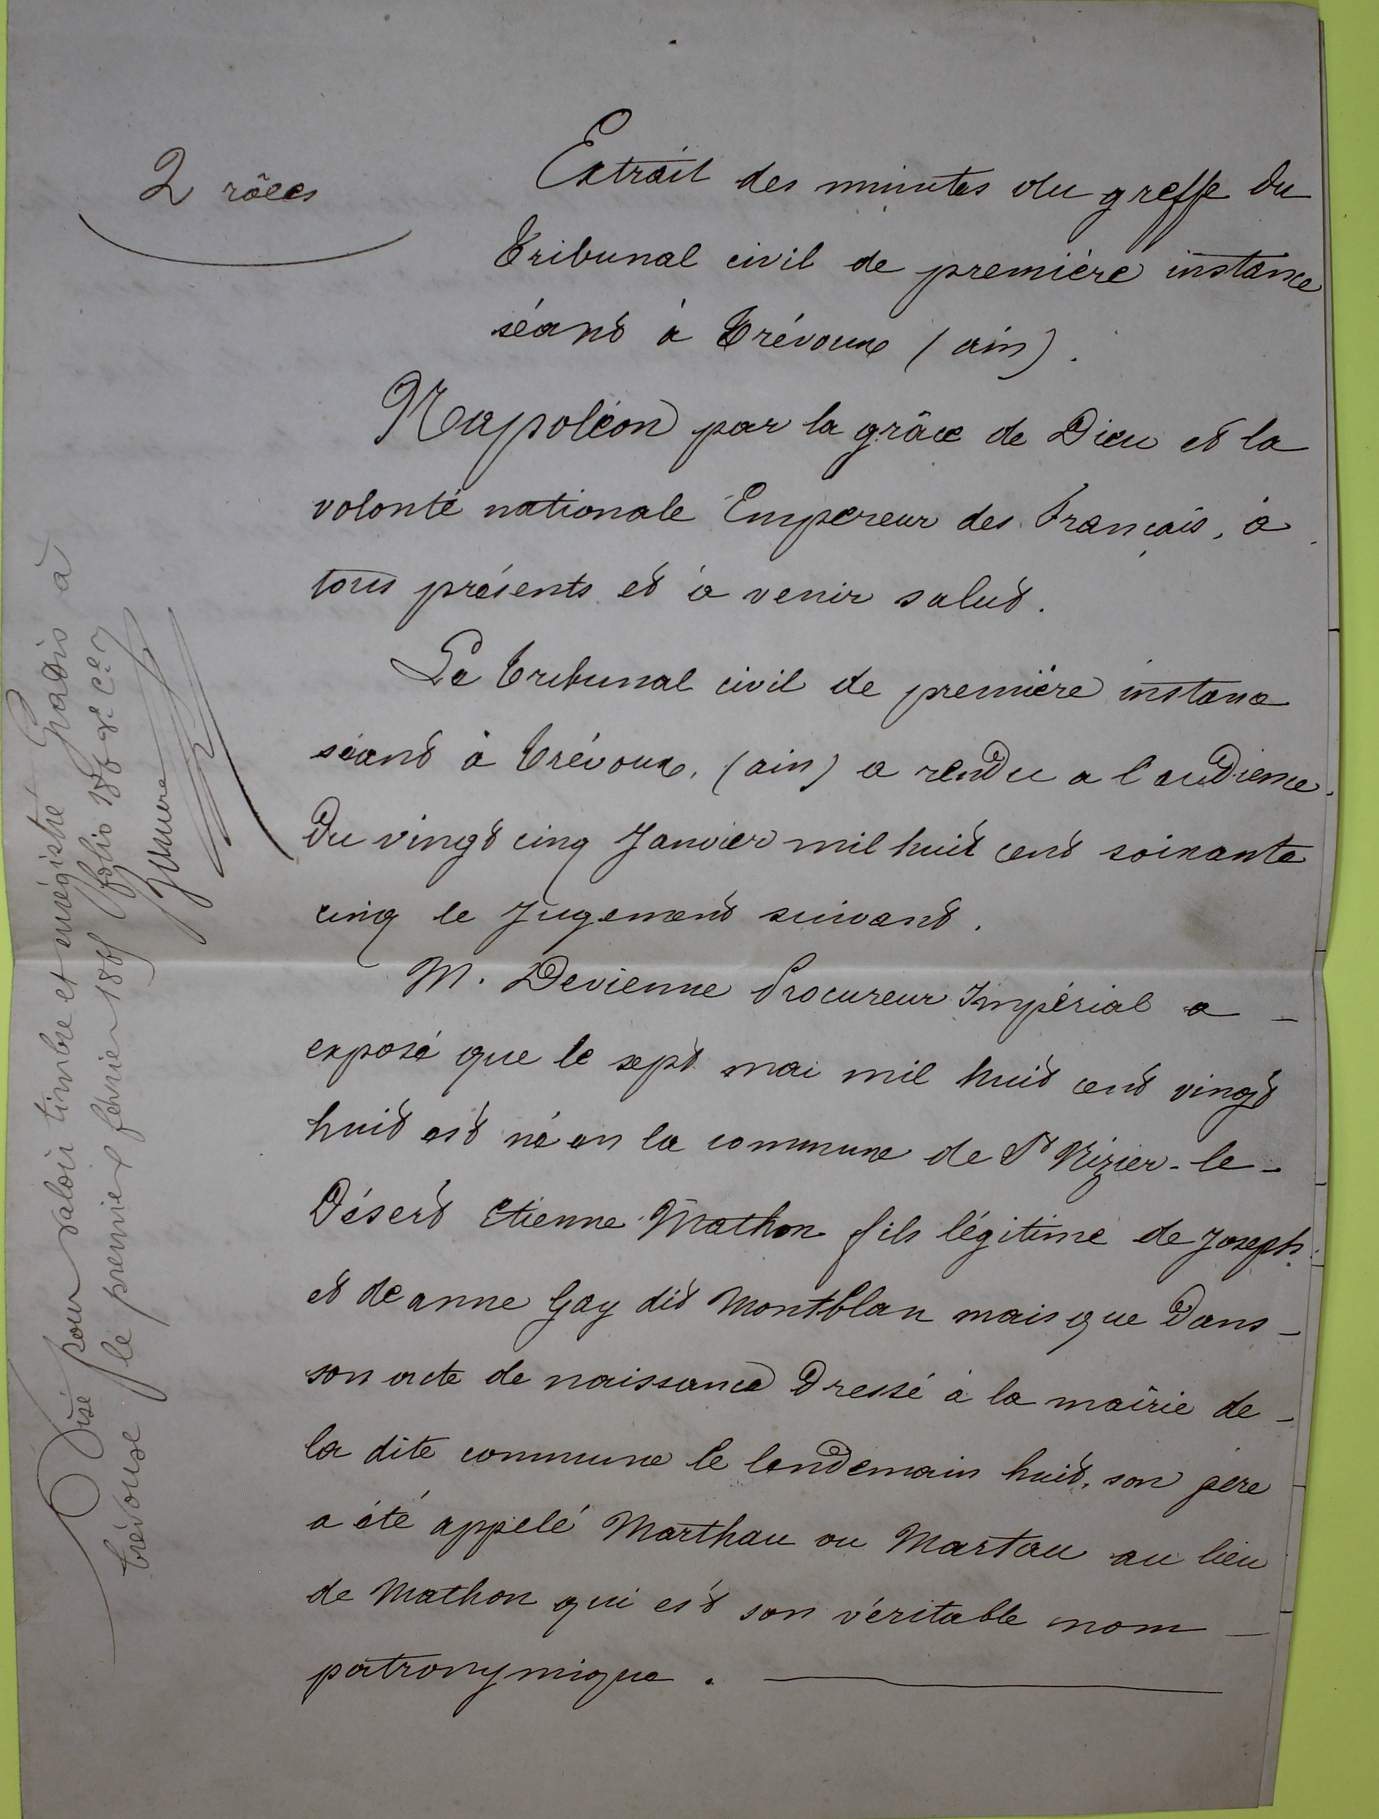 2 rôles
Extrait des minutes du greffe du
Tribunal civil de première instance
séant à Trévoux (ain).
Napoléon par la grâce de Dieu et la
volonté nationale Empereur des Français, à
tous présents et à venir salut.
Le tribunal civil de première instance
séant à Trévoux, (ain) a rendu a l'audience
Du vingt cinq Janvier mil huit cent soixante
cinq le Jugement suivant.
M. Devienne Procureur Impérial a _
exposé que le sept mai mil huit cent vingt
huit est né en la commune de St Nizier-le-
Désert Etienne Mathon fils légitime de Joseph
et de anne Gay dit Montblan mais que Dans _
son acte de naissance Dressé à la mairie de _
la dite commune le lendemain huit, son père
a été appelé Marthau ou Martau au lieu
de Mathon qui est son véritable nom _
patronymique.
Visé pour valoir timbre et enrégistré Gratis à
trévoux le premier février 1865 folio 186